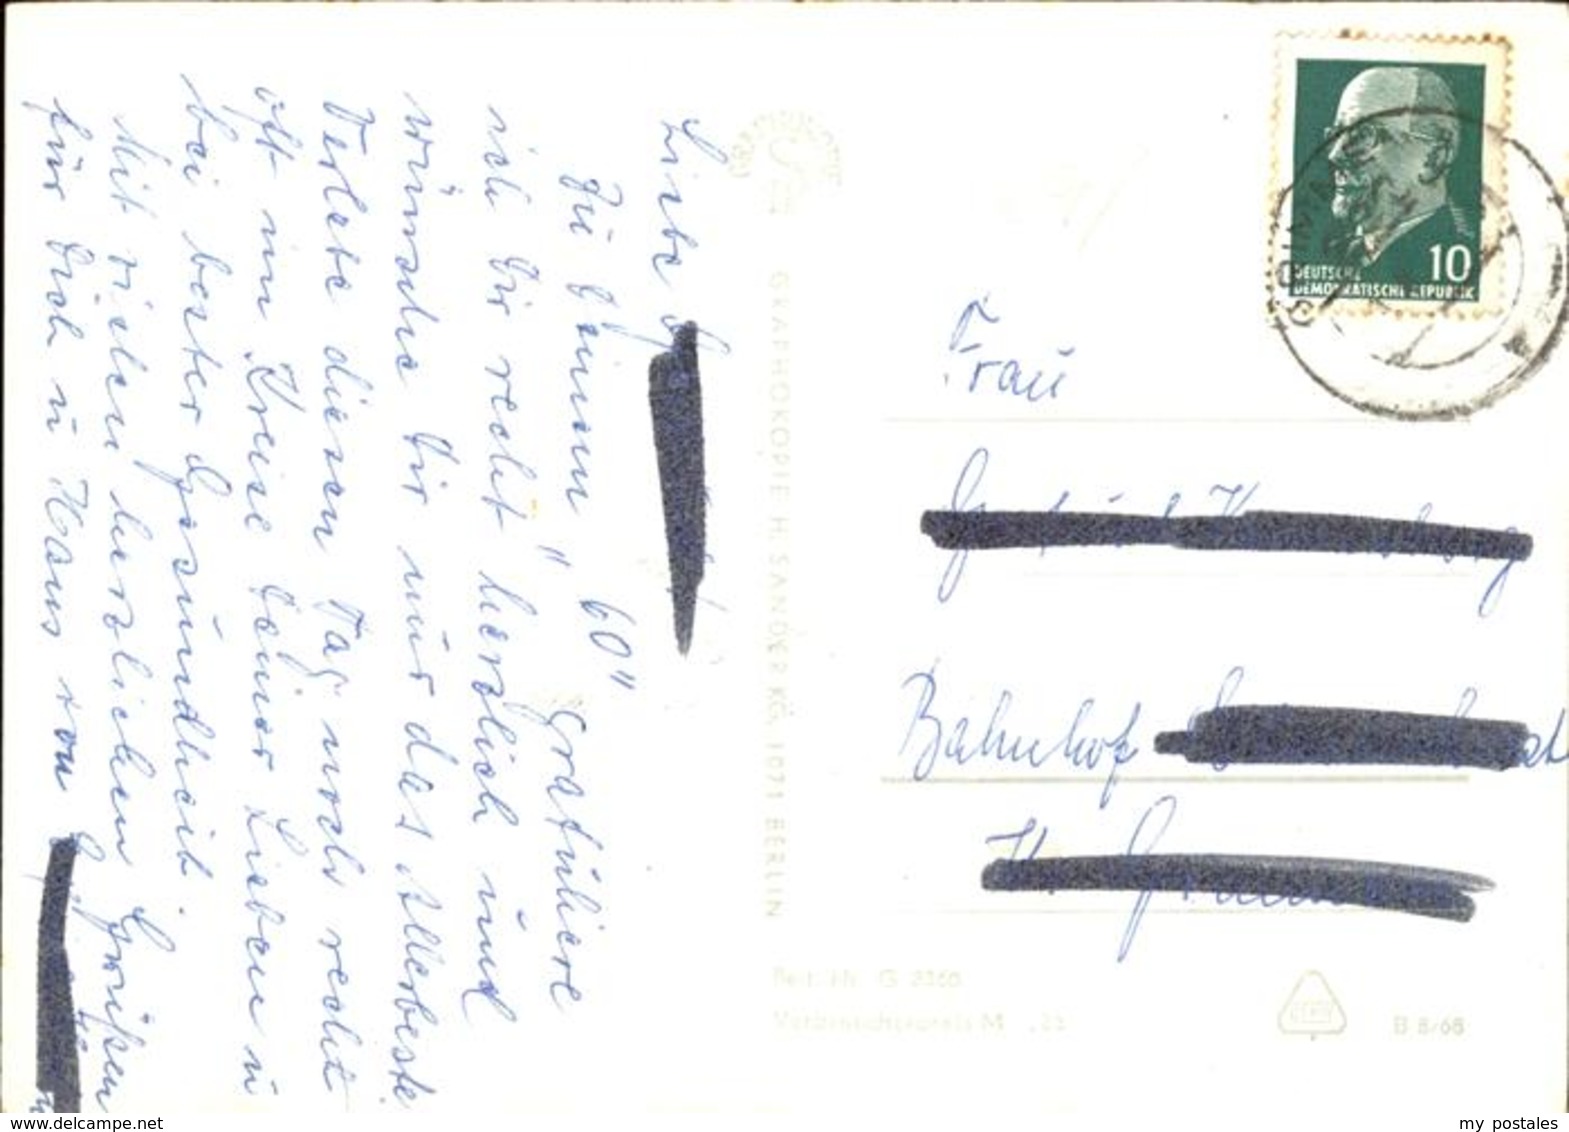 Liebe
Zu Deinem "60" gratuliere
ich Dir recht herzlich und
wünsche Dir nur das Allerbeste.
Verlebe diesen Tag noch recht
oft im Kreise Deiner Lieben u
bei bester Gesundheit.
Mit vielen herzlichen Grüßen
für Dich u Haus von
GRAPHOKOPIE H. SANDER KG, 1071 BERLIN
10
DEUTSCHE
DEMOKRATISCHE REPUBLIK
Frau
Bahnhof
Best.-Nr. G 8360
Verbraucherpreis M
B 8/68
www.delcampe.net
my postales